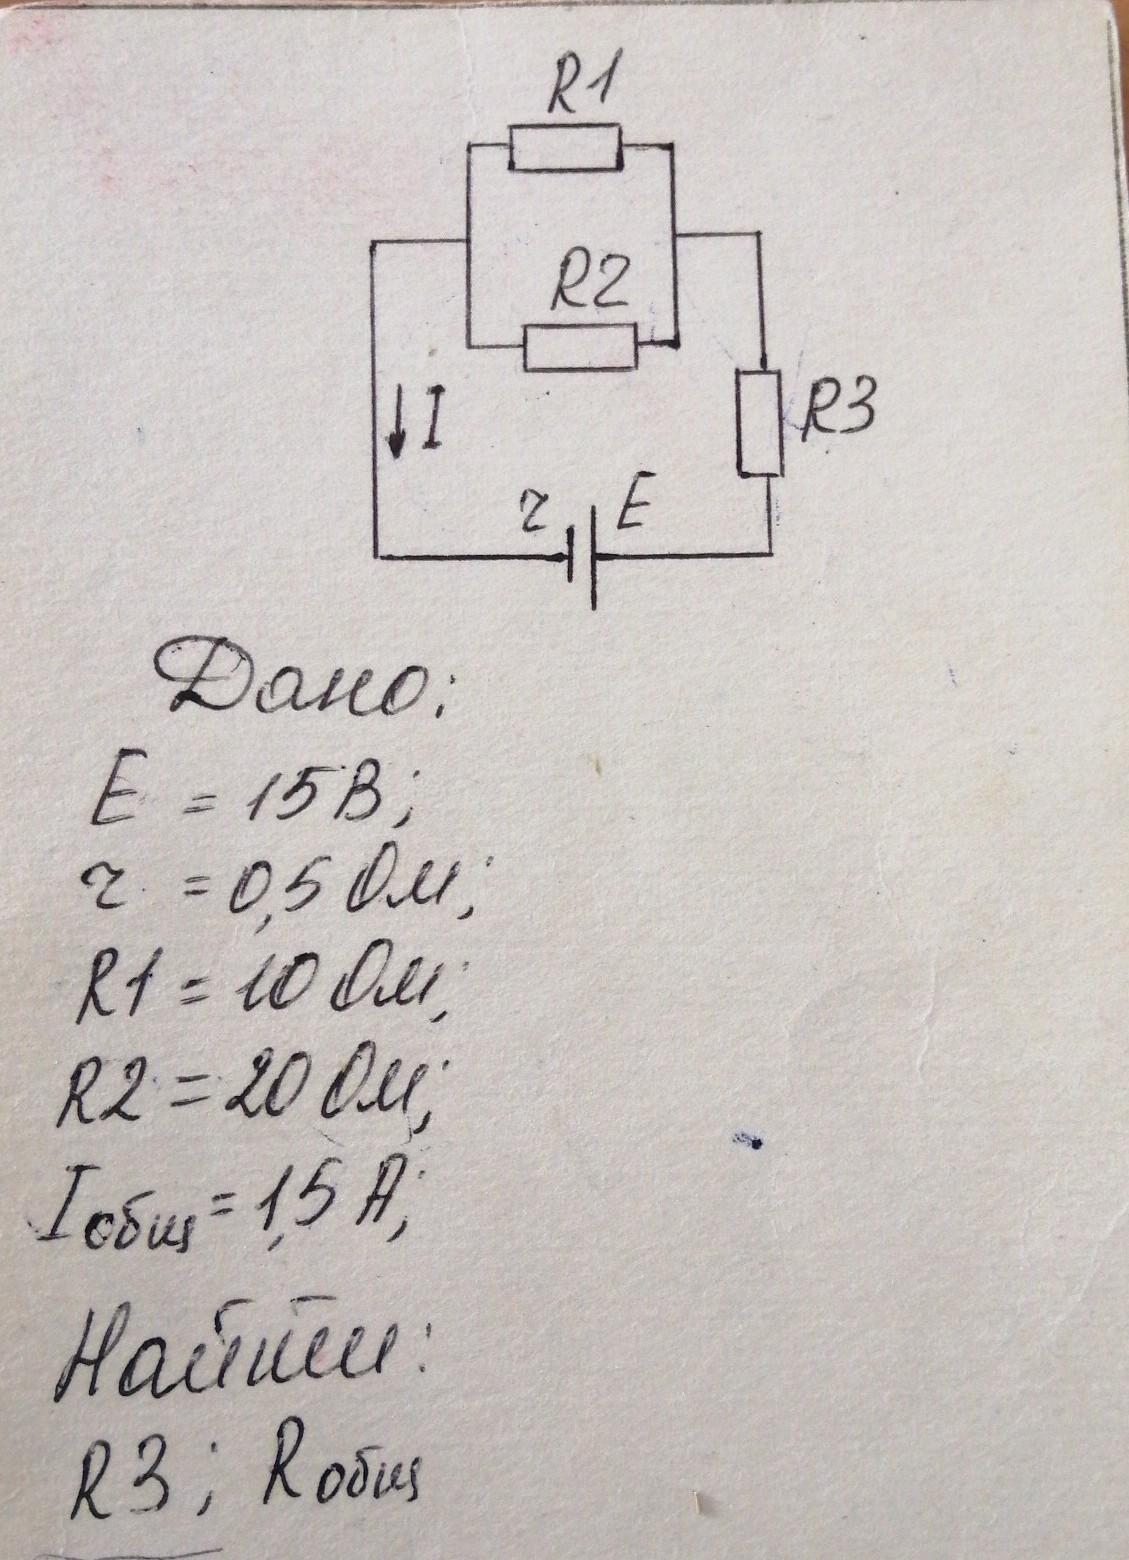 R1
R2
R3
I
r E
Дано:
E = 15 В;
r = 0,5 Ом;
R1 = 10 Ом;
R2 = 20 Ом;
Iобщ = 1,5 А;
Найти:
R3; Rобщ